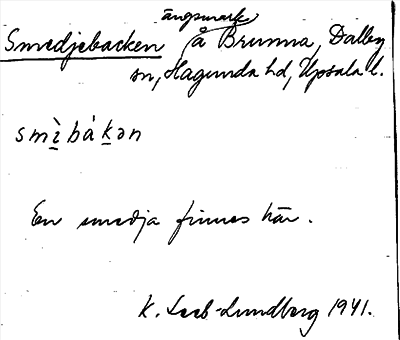 ängsmark
Smedjebacken å Brunna, Dalby
sn, Hagunda hd, Upsala l.
smì̱bákə̱n
En smedja finnes här.
K. Leeb-Lundberg 1941.